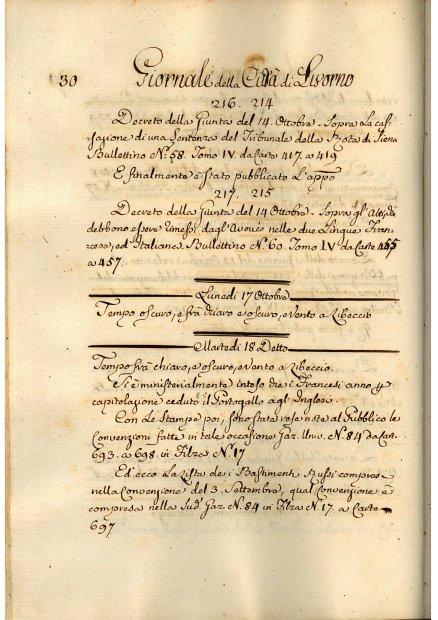 30 Giornale della Città di Livorno
216. 214
Decreto della Giunta del 14. Ottobre. Sopra La cas-
sazione di una Sentenza del Tribunale della Rota di Siena
Bullettino N.º 58. Tomo IV. da Carte 417. a 419
E finalmente è stato pubblicato L'appo
217. 215
Decreto della Giunta del 14 Ottobre. Sopra gl'Atti, che
debbono essere rimessi dagl'Avoués nelle due Lingue Fran-
cese, ed Italiana. Bullettino N.º 60. Tomo IV da Carte 455
a 457.
Lunedì 17 Ottobre
Tempo oscuro, e frà chiaro e oscuro, e vento a Libeccio
Martedì 18 Detto
Tempo frà chiaro, e oscuro, e vento a Libeccio.
Si è ministerialmente inteso che i Francesi anno p
capitolazione ceduto il Portogallo agl'Inglesi.
Con Le Stampe poi, sono state rese note al Pubblico le
Convenzioni fatte in tale occasione Gaz. Univ. N.º 84 da Car.
693. a 698. in Filza N.º 17
Ed ecco La Lista de i Bastimenti Russi compresi
nella Convenzione del 3. Settembre, qual Convenzione è
compresa nella Sud.ª Gaz. N.º 84 in Filza N.º 17. a Carte
697